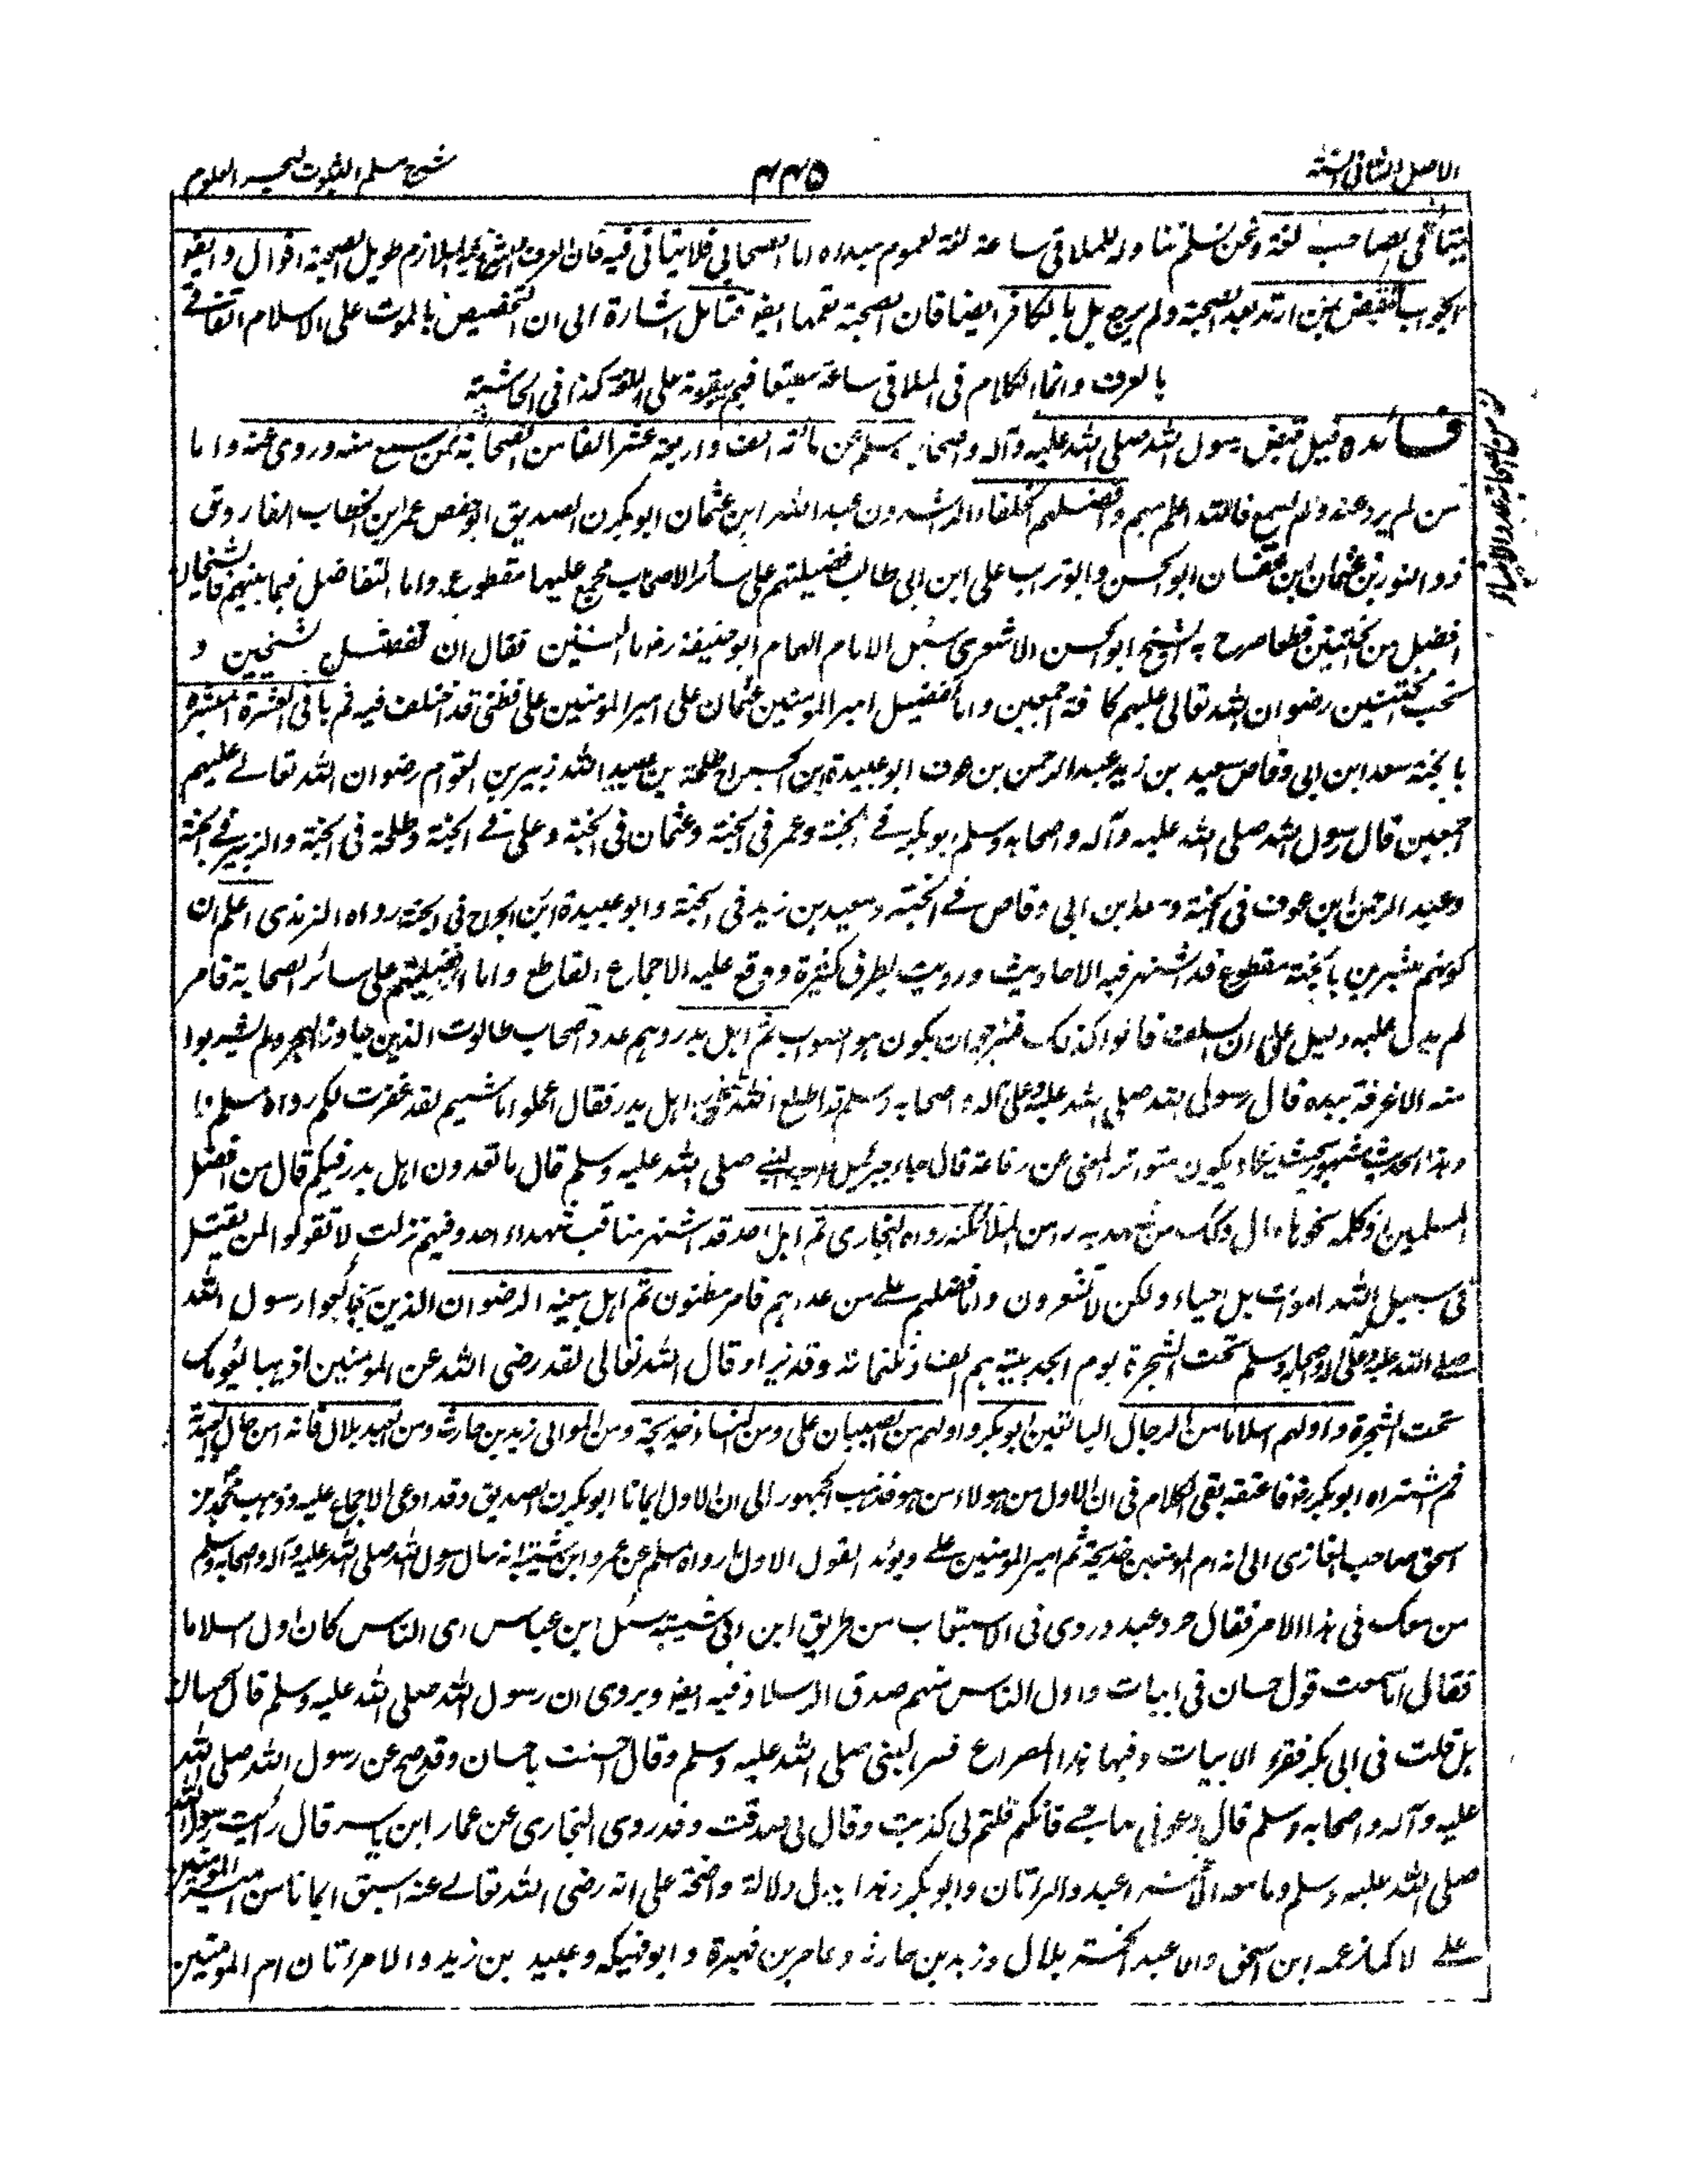 الاصل الثانی السنة
۴۴۵
شرح مسلم الثبوت لبحر العلوم
يتأتى بصاحب لغة ونحن نسلم تناوله للملاقي ساعة لغة لعموم مبداه اما الصحابي فلا يتأتى فيه فان العرف الملازم طويل الصحبة اقوال وايضا
الجواب بمن ارتد بعد الصحبة ولم يرجع بل بالكافر ايضا فان الصحبة تعمها ايضا فتامل اشارة الى ان التخصيص بالموت على الاسلام اتفاقي
بالعرف وانما الكلام في الملاقي ساعة على اللغة كذا في الحاشية
فائده قيل قبض رسول الله صلى الله عليه وآله واصحابه وسلم عن مائة الف واربعة عشر الفا من الصحابة ممن سمع منه وروى عنه واما
من لم يرو عنه ولم يسمع فالله اعلم بهم وافضلهم الخلفاء الراشدون عبد الله ابن عثمان ابو بكرن الصديق ابو حفص عمر ابن الخطاب الفاروق
ذو النورين عثمان ابن عفان ابو الحسن وابو تراب على ابن ابى طالب فضيلتهم على سائر الاصحاب مجمع عليها مقطوعة واما التفاضل فيما بينهم فالشيخان
افضل من الختنين قطعا صرح به الشيخ ابو الحسن الاشعرى سئل الامام الهمام ابو حنيفة رضـ ما السنيين فقال ان تفضل الشيخين و
تحب الختنين رضوان الله تعالى عليهم كافة اجمعين واما تفضيل امير المومنين عثمان على امير المومنين على فظنى قد اختلف فيه ثم باقى العشرة المبشرة
بالجنة سعد ابن ابى وقاص سعيد بن زيد عبد الرحمن بن عوف ابو عبيدة ابن الجراح طلحة بن عبيد الله زبير بن العوام رضوان الله تعالے عليهم
اجمعين قال رسول الله صلى الله عليه وآله واصحابه وسلم ابو بكر فے الجنة وعمر فى الجنة وعثمان فى الجنة وعلى فے الجنة وطلحة فى الجنة والزبير فے الجنة
وعبد الرحمن ابن عوف فى الجنة وسعد بن ابى وقاص فے الجنة وسعيد بن زيد فى الجنة وابو عبيدة ابن الجراح فى الجنة رواه الترمذى اعلم ان
كونهم مبشرين بالجنة مقطوع قد اشتهر فيه الاحاديث ورويت بطرق كثيرة ووقع عليه الاجماع القاطع واما افضليتهم على سائر الصحابة فامر
لم يدل عليه دليل على ان السلف قالوا كذلك فنرجو ان يكون هو الصواب ثم اهل بدر وهم عدد اصحاب طالوت الذين جاوزوا النهر ولم يشربوا
منه الا غرفة بيده قال رسول الله صلى الله عليه وعلى آله واصحابه وسلم قد اطلع الله على اهل بدر فقال اعملوا ما شئتم لقد غفرت لكم رواه مسلم
وهذا الحديث مشهور بحيث يكاد يكون متواتر المعنى عن رفاعة قال جاء جبرئيل الى النبے صلى الله عليه وسلم قال ما تعدون اهل بدر فيكم قال من افضل
المسلمين او كلمة نحوها قال وكذلك من شهد بدرا من الملائكة رواه البخارى ثم اهل احد قد اشتهر مناقب شهداء احد وفيهم نزلت لا تقولوا لمن يقتل
فى سبيل الله اموات بل احياء ولكن لا تشعرون واما فضلهم علے من عداهم فامر مظنون ثم اهل بيعة الرضوان الذين بايعوا رسول الله
صلے الله عليه وعلى آله واصحابه وسلم تحت الشجرة يوم الحديبية هم الف وثلثمائة وقد يزاد وقال الله تعالى لقد رضى الله عن المومنين اذ يبايعونك
تحت الشجرة واولهم اسلاما من الرجال البالغين ابو بكر واولهم من الصبيان على ومن النساء خديجة ومن الموالى زيد بن حارثة ومن العبيد بلال فانه امن حال العبدية
ثم اشتراه ابو بكر رضـ فاعتقه بقى الكلام فى ان الاول من هولاء من هو فذهب الجمهور الى ان الاول ايمانا ابو بكرن الصديق وقد ادعى الاجماع عليه وذهب محمد بن
اسحق صاحب المغازى الى انه ام المومنين خديجة ثم امير المومنين علے ويويد القول الاول ما رواه مسلم عن عمرو ابن انه سال رسول الله صلى الله عليه وآله واصحابه وسلم
من معك فى هذا الامر فقال حر وعبد وروى فى الاستيعاب من طريق ابن ابى شيبة سئل ابن عباس اى الناس كان اول اسلاما
فقال اما سمعت قول حسان فى ابيات واول الناس منهم صدق الرسلا وفيه ايضا ويروى ان رسول الله صلى الله عليه وسلم قال لحسان
هل قلت فى ابى بكر فقرء الابيات وفيها هذا المصراع فسر النبى صلى الله عليه وسلم وقال احسنت يا حسان وقد صح عن رسول الله صلى الله
عليه وآله واصحابه وسلم قال دعونى صاحبے فانكم قلتم لى كذبت وقال لى صدقت وقد روى البخارى عن عمار ابن ياسر قال رايت رسول الله
صلى الله عليه وسلم وما معه الا خمسة اعبد وامراتان وابو بكر وهذا يدل دلالة واضحة على انه رضى الله تعالے عنه اسبق ايمانا من امير المومنين
علے لا كما زعمه ابن اسحق واما عبد الخمسة بلال وزيد بن حارثة وعامر بن فهيرة وابو فكيهة وعبيد بن زيد والامراتان ام المومنين